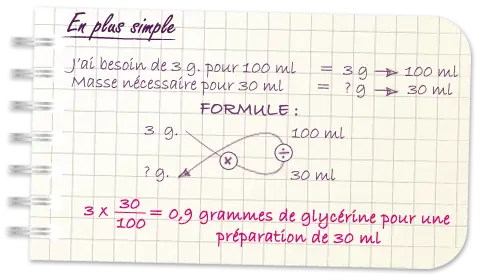 En plus simple
J'ai besoin de 3 g. pour 100 ml = 3 g → 100 ml
Masse nécessaire pour 30 ml = ? g → 30 ml
FORMULE :
3 g. 100 ml
× ÷
? g. 30 ml
3 x 30/100 = 0,9 grammes de glycérine pour une
préparation de 30 ml